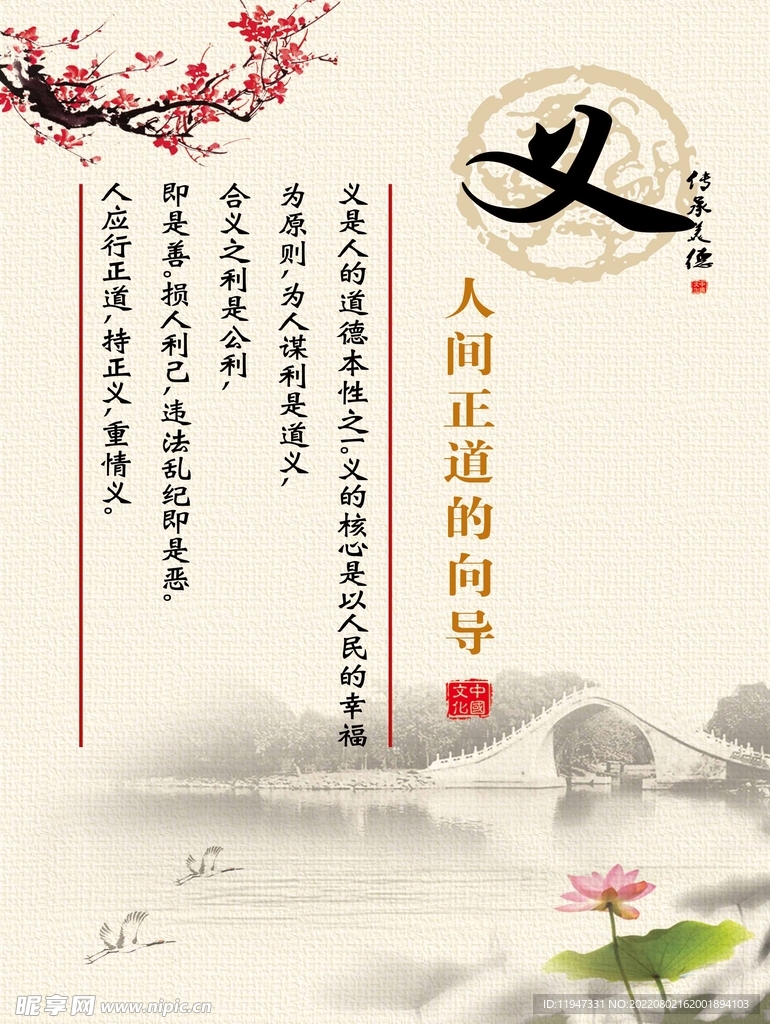 义
传承美德
中國文化
人间正道的向导
中國文化
义是人的道德本性之一。义的核心是以人民的幸福
为原则，为人谋利是道义，
合义之利是公利，
即是善。损人利己，违法乱纪即是恶。
人应行正道，持正义，重情义。
昵享网 www.nipic.cn
ID:11947331 NO:20220802162001894103